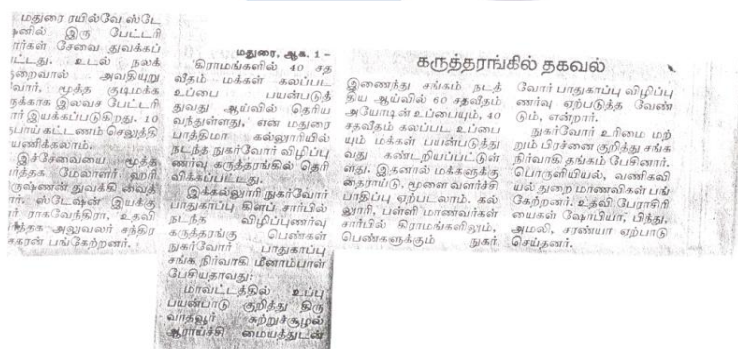 மதுரை ரயில்வே ஸ்டே
னில் இரு பேட்டரி
ார்கள் சேவை துவக்கப்
பட்டது. உடல் நலக்
குறைவால் அவதியுறு
வோர், மூத்த குடிமக்க
ளுக்காக இலவச பேட்டரி
ார் இயக்கப்படுகிறது. 10
ரூபாய் கட்டணம் செலுத்தி
பயணிக்கலாம்.
இச்சேவையை மூத்த
வர்த்தக மேலாளர் ஹரி
கிருஷ்ணன் துவக்கி வைத்
தார். ஸ்டேஷன் இயக்கு
னர் ராகவேந்திரா, உதவி
வர்த்தக அலுவலர் சந்திர
சேகரன் பங்கேற்றனர்.
மதுரை, ஆக. 1 –
'கிராமங்களில் 40 சத
வீதம் மக்கள் கலப்பட
உப்பை பயன்படுத்
துவது ஆய்வில் தெரிய
வந்துள்ளது,' என மதுரை
பாத்திமா கல்லூரியில்
நடந்த நுகர்வோர் விழிப்பு
ணர்வு கருத்தரங்கில் தெரி
விக்கப்பட்டது.
இக்கல்லூரி நுகர்வோர்
பாதுகாப்பு கிளப் சார்பில்
நடந்த விழிப்புணர்வு
கருத்தரங்கு பெண்கள்
நுகர்வோர் பாதுகாப்பு
சங்க நிர்வாகி மீனாம்பாள்
பேசியதாவது:
மாவட்டத்தில் உப்பு
பயன்பாடு குறித்து திரு
வாதவூர் சுற்றுச்சூழல்
ஆராய்ச்சி மையத்துடன்
கருத்தரங்கில் தகவல்
இணைந்து சங்கம் நடத்
திய ஆய்வில் 60 சதவீதம்
அயோடின் உப்பையும், 40
சதவீதம் கலப்பட உப்பை
யும் மக்கள் பயன்படுத்து
வது கண்டறியப்பட்டுள்
ளது. இதனால் மக்களுக்கு
தைராய்டு, மூளை வளர்ச்சி
பாதிப்பு ஏற்படலாம். கல்
லூரி, பள்ளி மாணவர்கள்
சார்பில் கிராமங்களிலும்,
பெண்களுக்கும் நுகர்
வோர் பாதுகாப்பு விழிப்பு
ணர்வு ஏற்படுத்த வேண்
டும், என்றார்.
நுகர்வோர் உரிமை மற்
றும் பிரச்னை குறித்து சங்க
நிர்வாகி தங்கம் பேசினார்.
பொருளியியல், வணிகவி
யல் துறை மாணவிகள் பங்
கேற்றனர். உதவி பேராசிரி
யைகள் ஷோபியா, பிந்து,
அமலி, சரண்யா ஏற்பாடு
செய்தனர்.